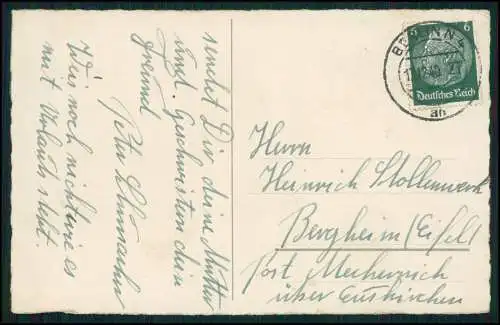 sendet Dir, deine Mutter
und Geschwistern dein
Freund
Peter Schumacher
Weis noch nicht wie es
mit Urlaub steht.
6
Deutsches Reich
Herrn
Heinrich Stollenwerk
Bergheim (Eifel)
Post Mechernich
über Euskirchen